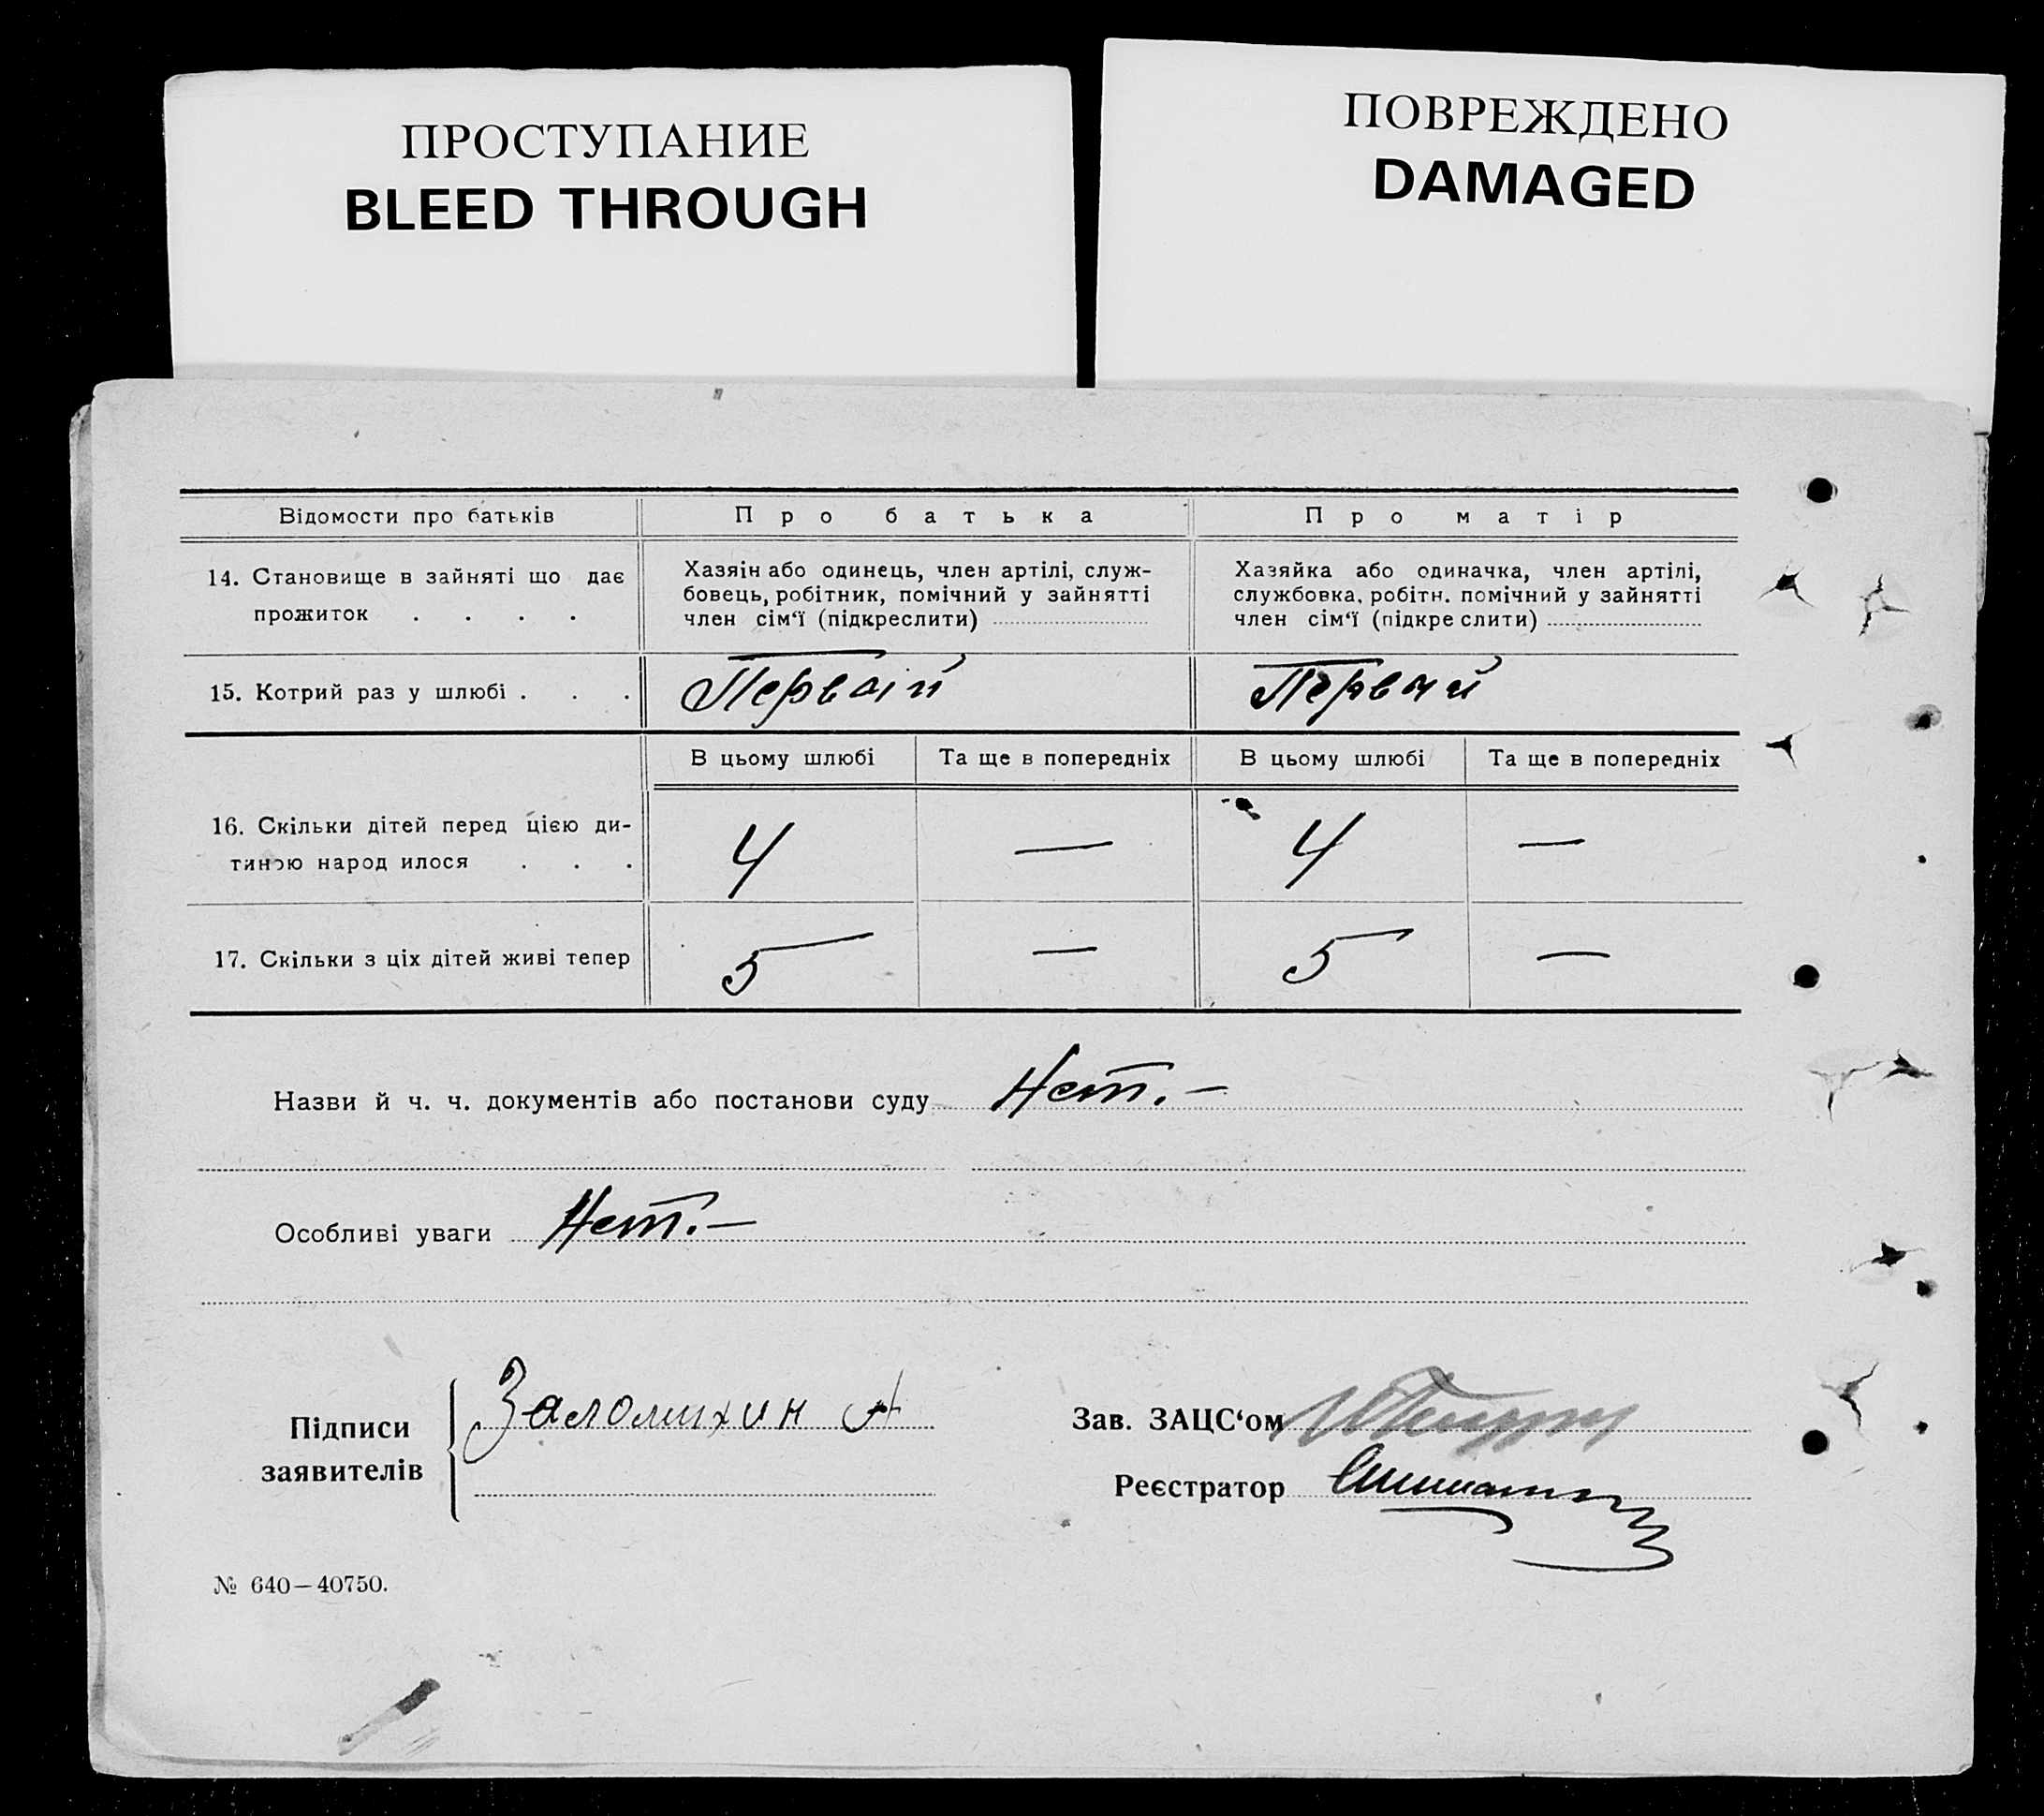 ПРОСТУПАНИЕ
BLEED THROUGH
ПОВРЕЖДЕНО
DAMAGED
Відомости про батьків
Про батька
Про матір
14. Становище в зайняті що дає
прожиток . . . .
Хазяін або одинець, член артілі, служ-
бовець, робітник, помічний у зайнятті
член сім‘ї (підкреслити)
Хазяйка або одиначка, член артілі,
службовка, робітн. помічний у зайнятті
член сім‘ї (підкре слити)
15. Котрий раз у шлюбі . . .
Первый
Первый
В цьому шлюбі
Та ще в попередніх
В цьому шлюбі
Та ще в попередніх
16. Скільки дітей перед цією ди-
тиною народ илося . . .
4 — 4 —
17. Скільки з ціх дітей живі тепер
5 — 5 —
Назви й ч. ч. документів або постанови суду Нет. —
Особливі уваги Нет. —
Підписи
заявителів
Заломихин А
Зав. ЗАЦС‘ом
Реєстратор
№ 640—40750.